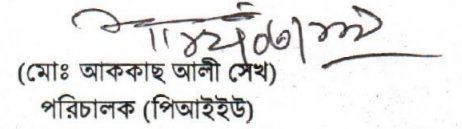 (মোঃ আককাছ আলী সেখ)
পরিচালক (পিআইইউ)